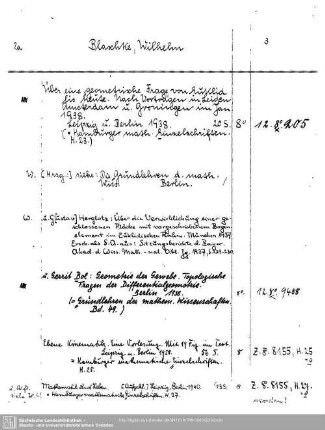 2a Blaschke, Wilhelm 3
Über eine geometrische Frage von Euklid
bis heute. Nach Vorträgen in Leiden
Amsterdam u. Groningen im Jan.
1938.
Leipzig u. Berlin 1938. 20 S. 8° 12.8°.905
(= Hamburger math. Einzelschriften.
H. 23.)
W. [Hrsg.:] siehe: Die Grundlehren d. math.
Wiss. Berlin.
W. s. Gustav Herglotz: Über die
geschlossenen Fläche mit vorgeschriebenem Bogen-
element im Euklidischen Raum. München 1937
Ersch. als S.A. aus: Sitzungsberichte d. Bayer.
Akad. d. Wiss. Math.-nat. Abt. Jg. 1937,
u. Gerrit Bol: Geometrie der Gewebe. Topologische
Fragen der Differentialgeometrie.
Berlin 1938. 8°. 12.8° 9408
(= Grundlehren der mathem. Wissenschaften.
Bd. 49.)
Ebene Kinematik. Eine Vorlesung. Mit 19 Fig. im Text.
Leipzig u. Berlin 1938. 56 S. 8 Z. 8. 8155, H. 25
= Hamburger mathematische Einzelschriften.
H. 25.
Leipzig, Berlin 1940. 8 Z. 8. 8155, H. 27.
= Hamburger mathematische Einzelschriften, H. 27.
Sächsische Landesbibliothek -
Staats- und Universitätsbibliothek Dresden